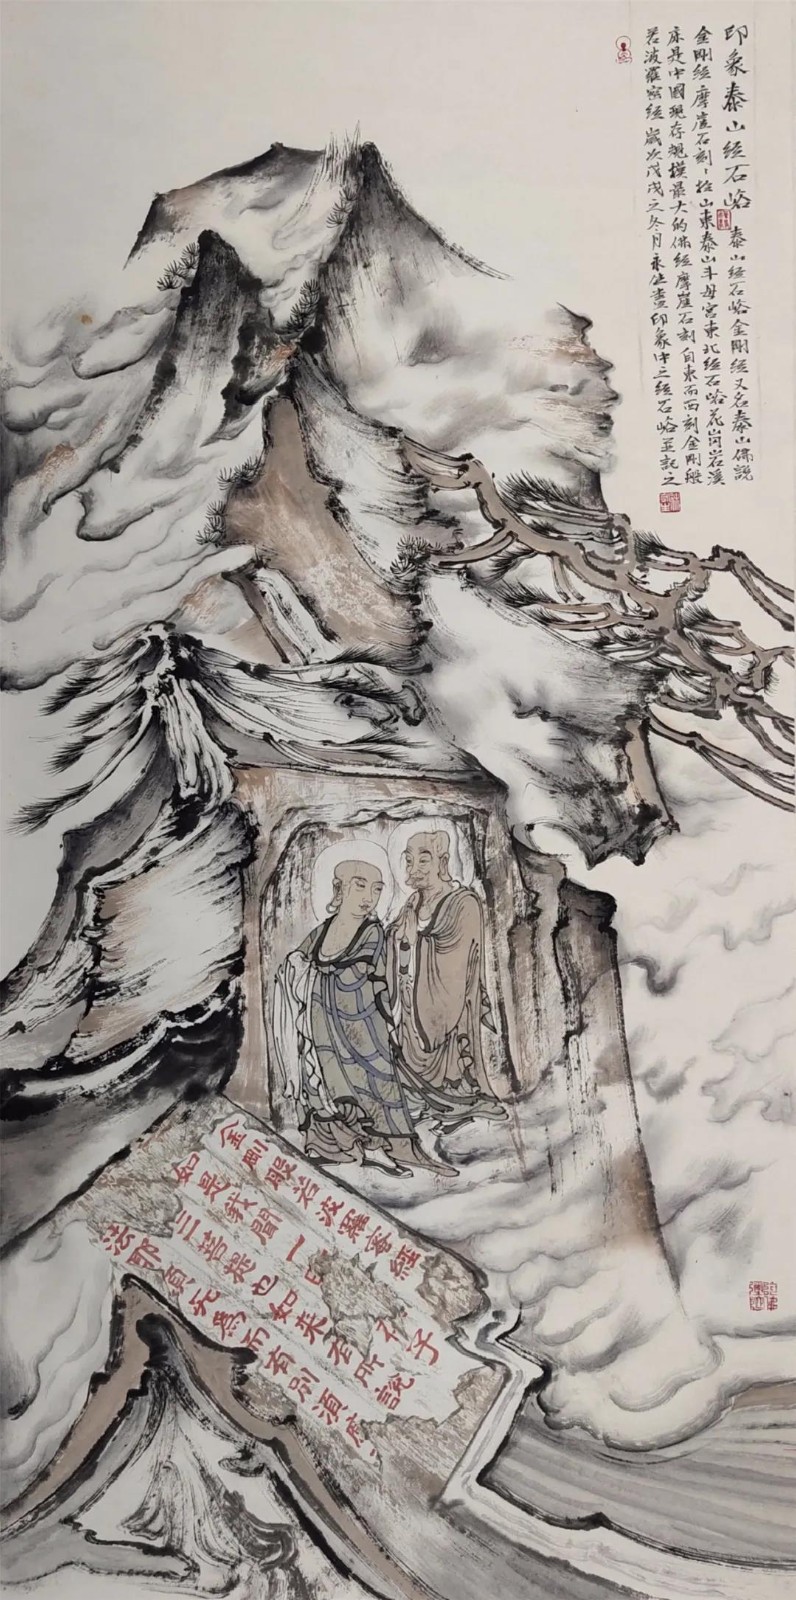 印象泰山经石峪 泰山经石峪金刚经又名泰山佛说
金刚经摩崖石刻、于山东泰山斗母宫东北经石峪花岗岩溪
床是中国现存规模最大的佛经摩崖石刻自东而西刻金刚般
若波罗密经 岁次戊戌之冬月永生画印象中之经石峪并记之
金剛般若波羅蜜經
如是我聞一
三菩提也如来在所說
法耶須无為而有别須